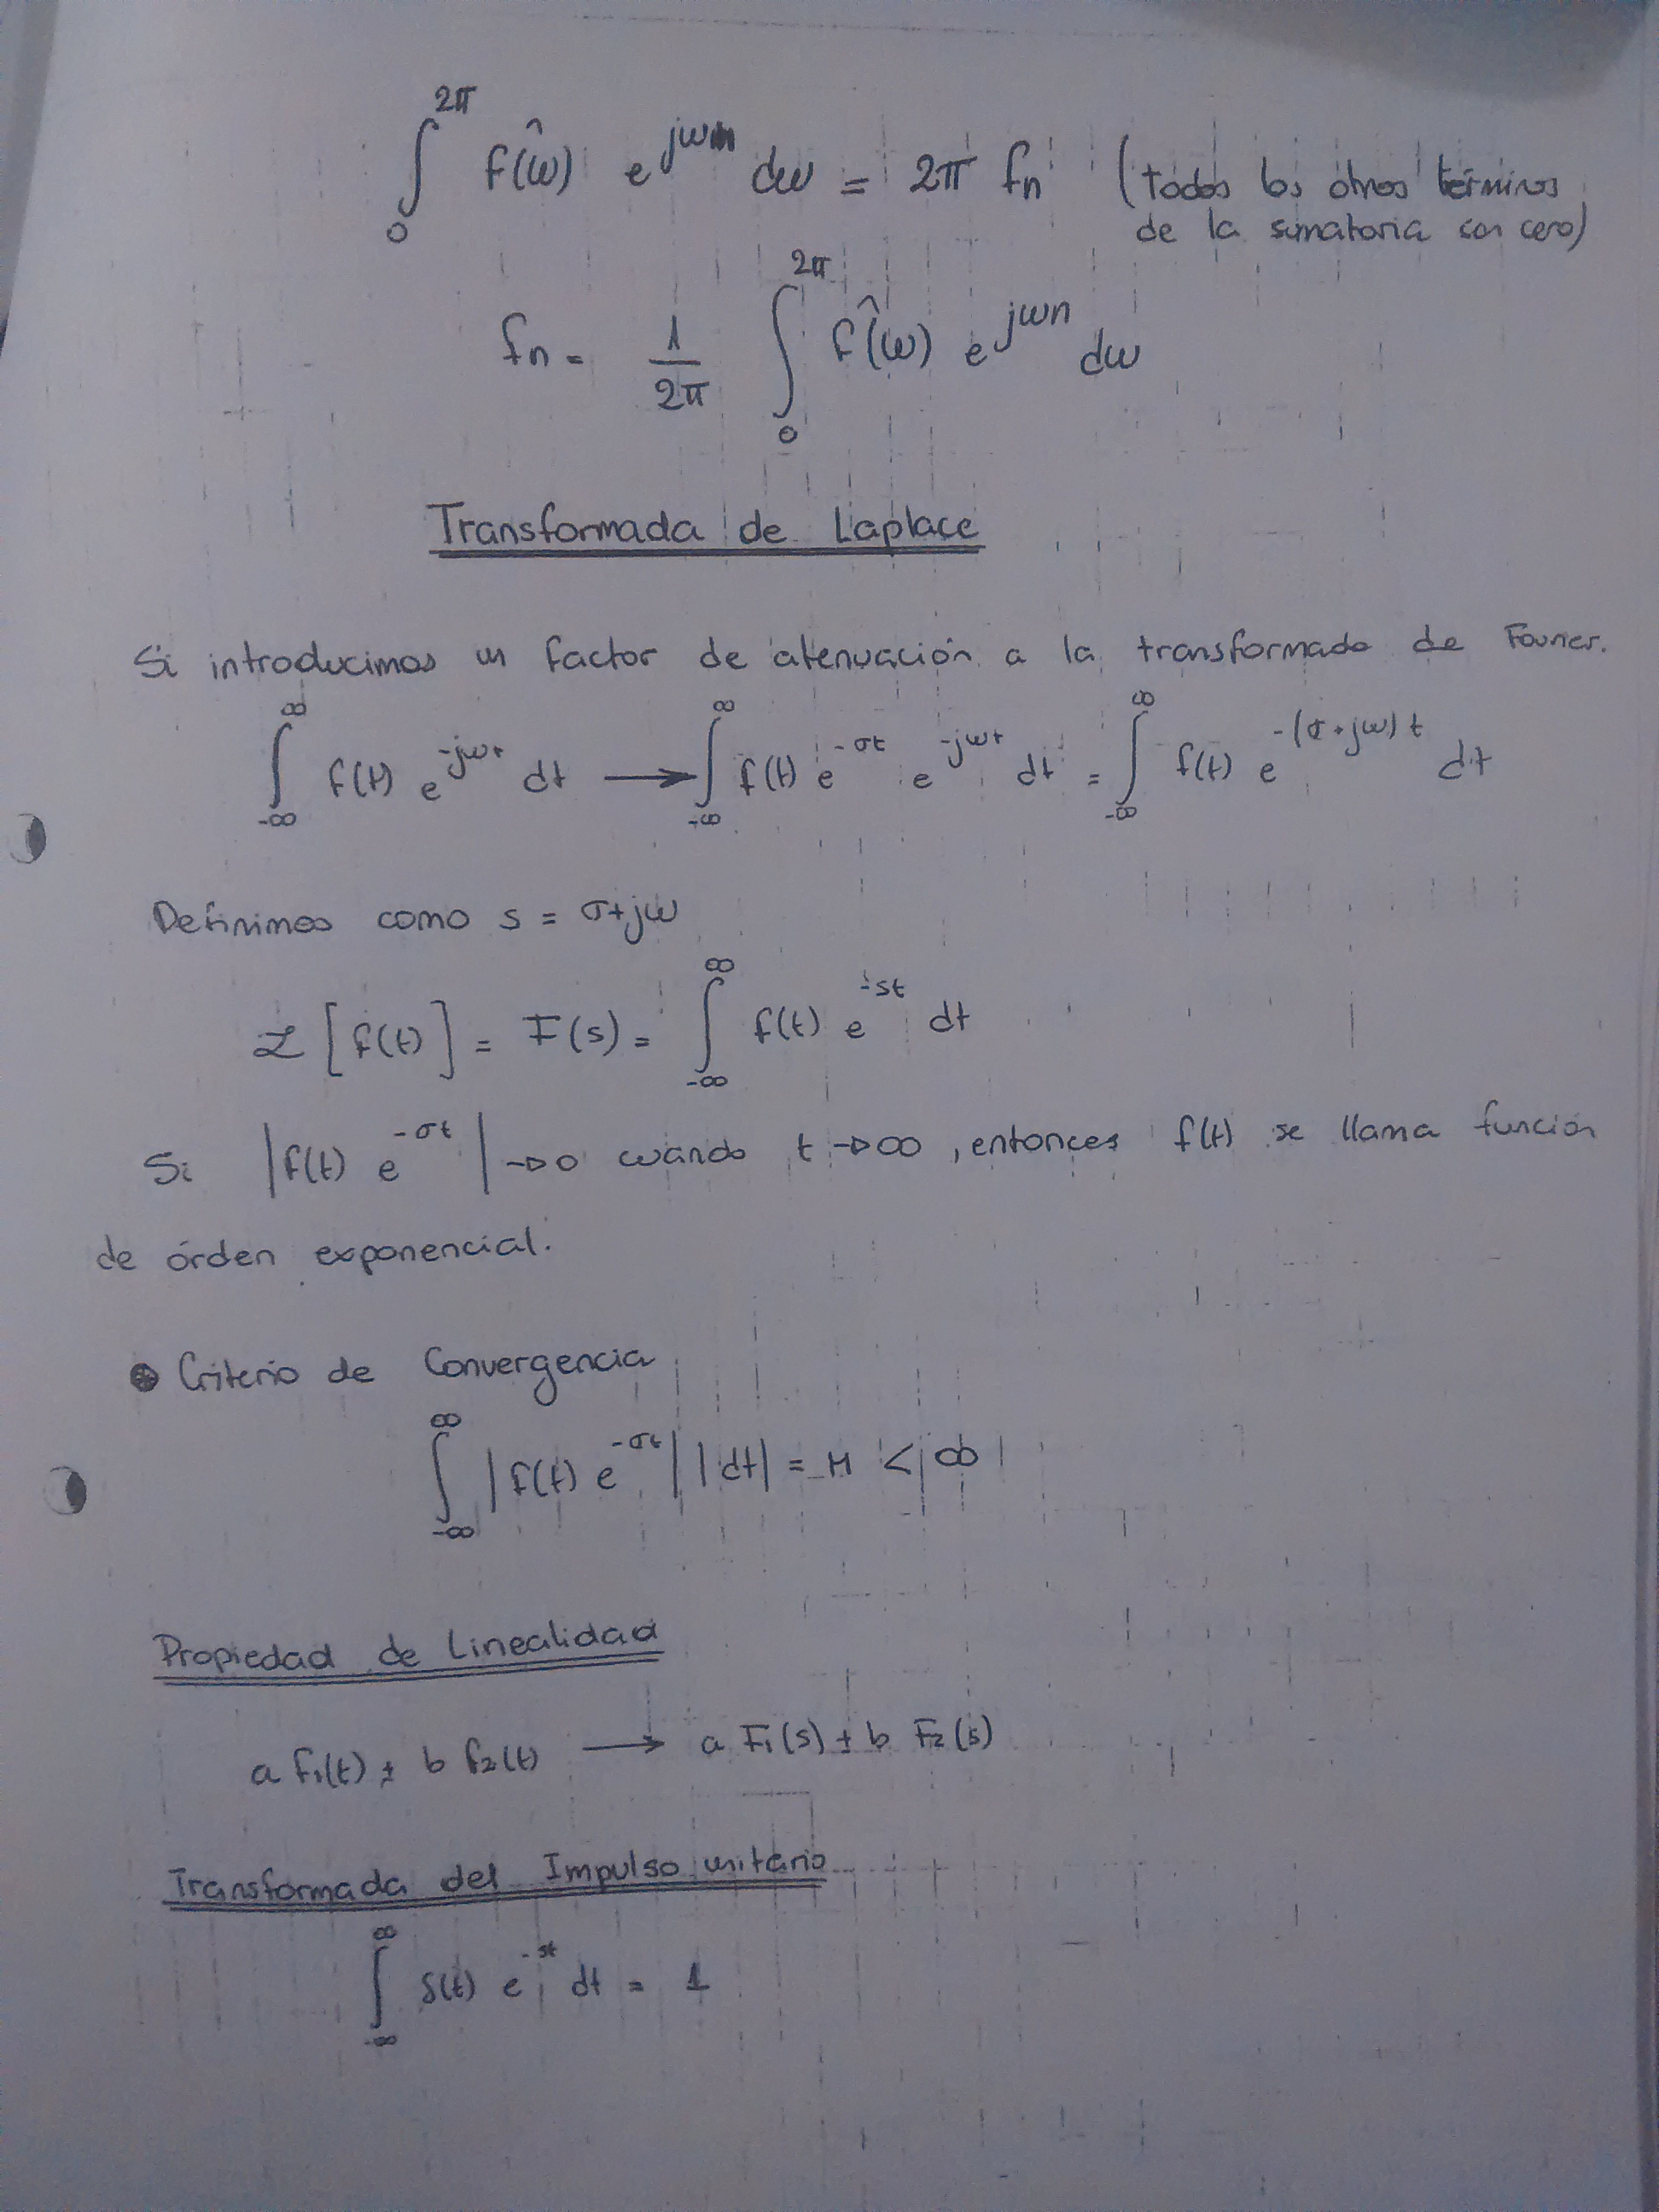 ∫₀^{2π} f̂(ω) e^{jωn} dω = 2π fn (todos los otros términos
de la sumatoria son cero)
fn = 1/2π ∫₀^{2π} f̂(ω) e^{jωn} dω
Transformada de Laplace
Si introducimos un factor de atenuación a la transformada de Fourier.
∫_{-∞}^{∞} f(t) e^{-jωt} dt → ∫_{-∞}^{∞} f(t) e^{-σt} e^{-jωt} dt = ∫_{-∞}^{∞} f(t) e^{-(σ+jω)t} dt
Definimos como s = σ+jω
ℒ[f(t)] = F(s) = ∫_{-∞}^{∞} f(t) e^{-st} dt
Si |f(t) e^{-σt}| → 0 cuando t → ∞, entonces f(t) se llama función
de órden exponencial.
Criterio de Convergencia
∫_{-∞}^{∞} |f(t) e^{-σt}| |dt| = M < ∞
Propiedad de Linealidad
a f₁(t) ± b f₂(t) → a F₁(s) ± b F₂(s)
Transformada del Impulso unitario
∫_{-∞}^{∞} δ(t) e^{-st} dt = 1